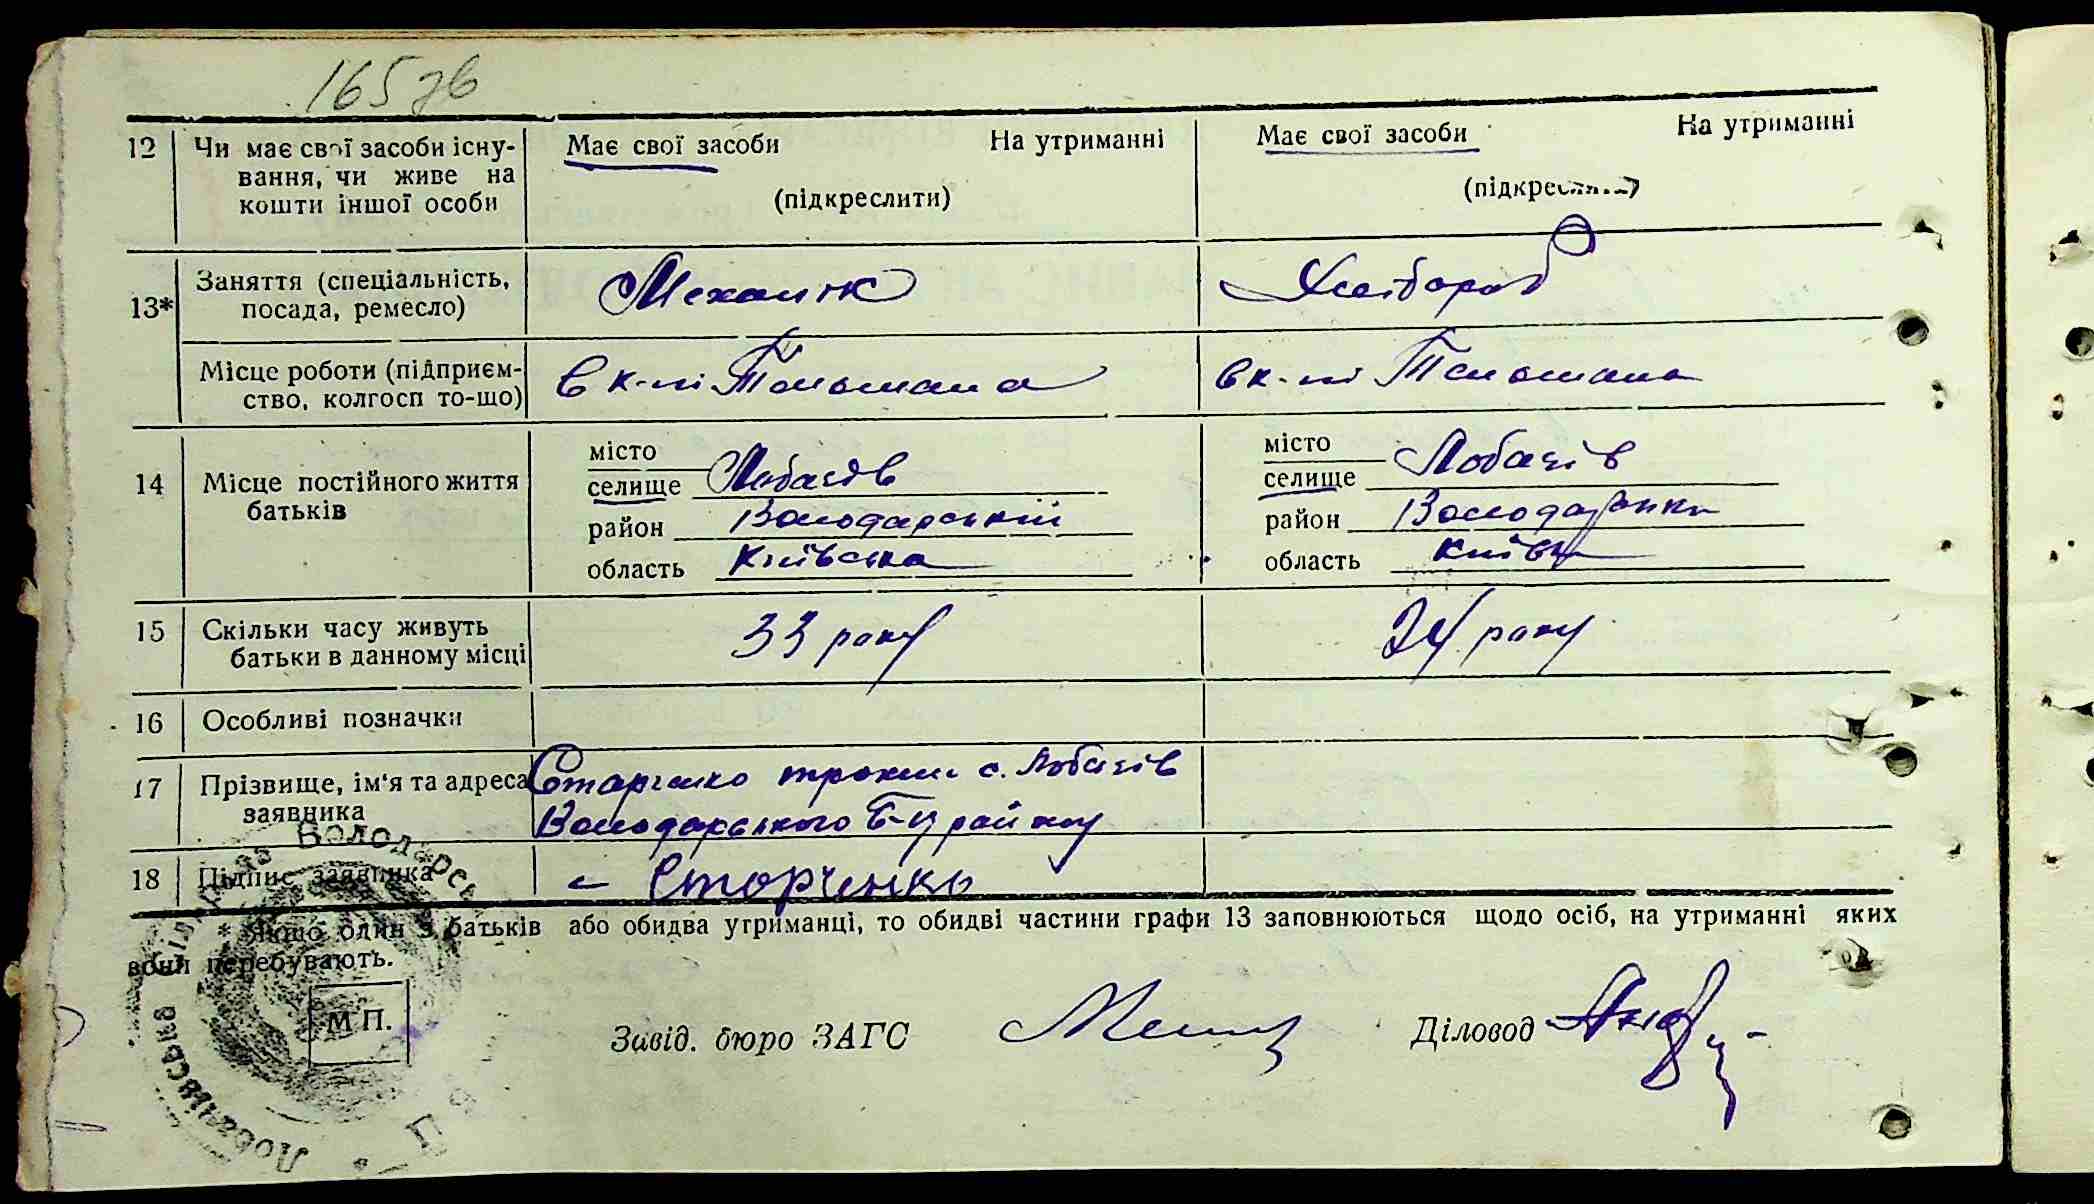 165 зв
12 Чи має свої засоби існу- Має свої засоби На утриманні Має свої засоби На утриманні
вання, чи живе на (підкреслити) (підкреслити)
кошти іншої особи
13* Заняття (спеціальність, Механік Хлібороб
посада, ремесло)
Місце роботи (підприєм- в к-пі Тельмана в к-пі Тельмана
ство, колгосп то-що)
14 Місце постійного життя місто місто
батьків селище Лобачів селище Лобачів
район Володарський район Володарськи
область Київська область Київ
15 Скільки часу живуть 33 року 24 року
батьки в данному місці
16 Особливі позначки
17 Прізвище, ім'я та адреса Сторченко Трохим с. Лобачів
заявника Володарського Б-Ц району
18 Підпис заявника Сторченко
* Якщо один з батьків або обидва утриманці, то обидві частини графи 13 заповнюються щодо осіб, на утриманні яких
вони перебувають.
М П.
Завід. бюро ЗАГС Діловод
Лобачівська сільрада Володарсь